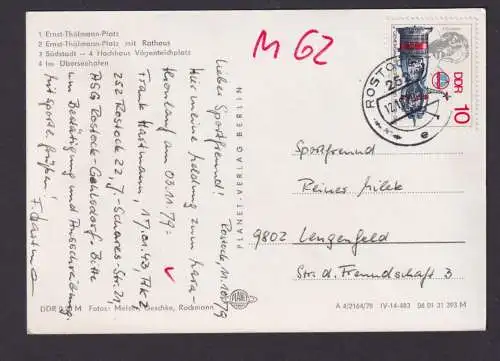 1 Ernst-Thälmann-Platz
2 Ernst-Thälmann-Platz mit Rathaus
3 Südstadt — 4 Hochhaus Vögenteichplatz
4 Im Überseehafen
M 62
Lieber Sportfreund! Rostock, 11.10.79
Hier meine Meldung zum
am 03.11.79:
Frank Hartmann, 17.01.43, AK 2
252 Rostock 22, J.-Schares-Str. 21,
ASG Rostock-Gehlsdorf. Bitte
um Bestätigung und Ausschreibung.
Mit sportl. Grüßen!
F. Hartma
PLANET-VERLAG BERLIN
PLANET
ROSTOCK
25
DDR
10
Sportfreund
9802 Lengenfeld
Str. d. Freundschaft 3
DDR M Fotos: Rockmann
A 4/2164/78 IV-14-483 08 01 31 393 M